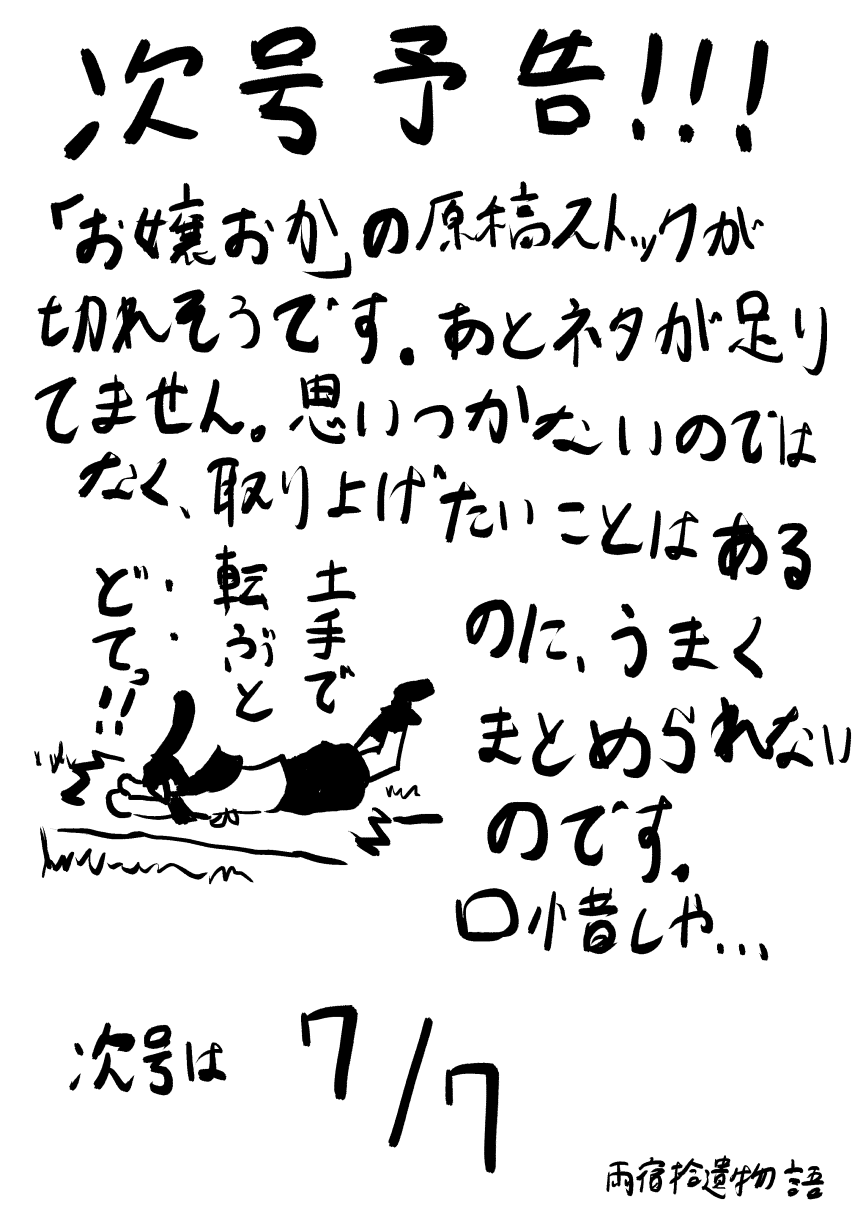 次号予告!!!
「お嬢おか」の原稿ストックが
切れそうです。あとネタが足り
てません。思いつかないのでは
なく、取り上げたいことはある
のに、うまく
まとめられない
のです。
口惜しや...
土手で
転ぶと
・・
どてっ!!
次号は 7/7
雨宿拾遺物語